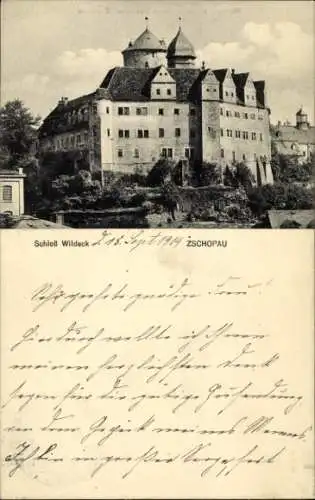 Schloß Wildeck d. 18. Sept. 1914 ZSCHOPAU
Sehr geehrte gnädige Frau!
Hierdurch wollte ich Ihnen
meinen herzlichsten Dank
sagen für die gütige Zusendung
von dem Gepäck meines Mannes.
Ich bin in großer Sorge, hest